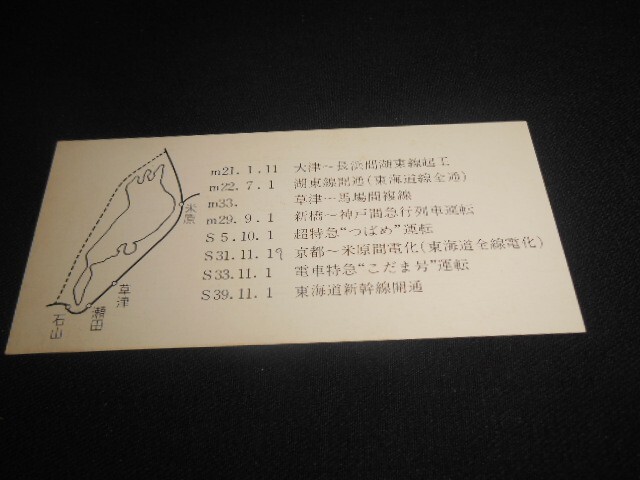 m21. 1. 11 大津～長浜間湖東線起工
m22. 7. 1 湖東線開通(東海道線全通)
m33. 草津―馬場間複線
m29. 9. 1 新橋～神戸間急行列車運転
S 5. 10. 1 超特急“つばめ”運転
S 31. 11. 19 京都～米原間電化(東海道全線電化)
S 33. 11. 1 電車特急“こだま号”運転
S 39. 11. 1 東海道新幹線開通
米原
草津
瀬田
石山